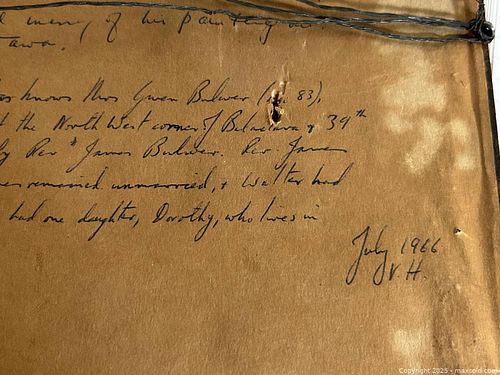 many of his paintings
tawa.
as knows Mrs Gwen Bulwer ( 83),
t the North West corner of Balaclava & 39th
by Rev^d James Bulwer. Rev. James
remained unmarried, & Walter had
had one daughter, Dorothy, who lives in
July 1966
V.H.
Copyright 2025 - maxsold.com